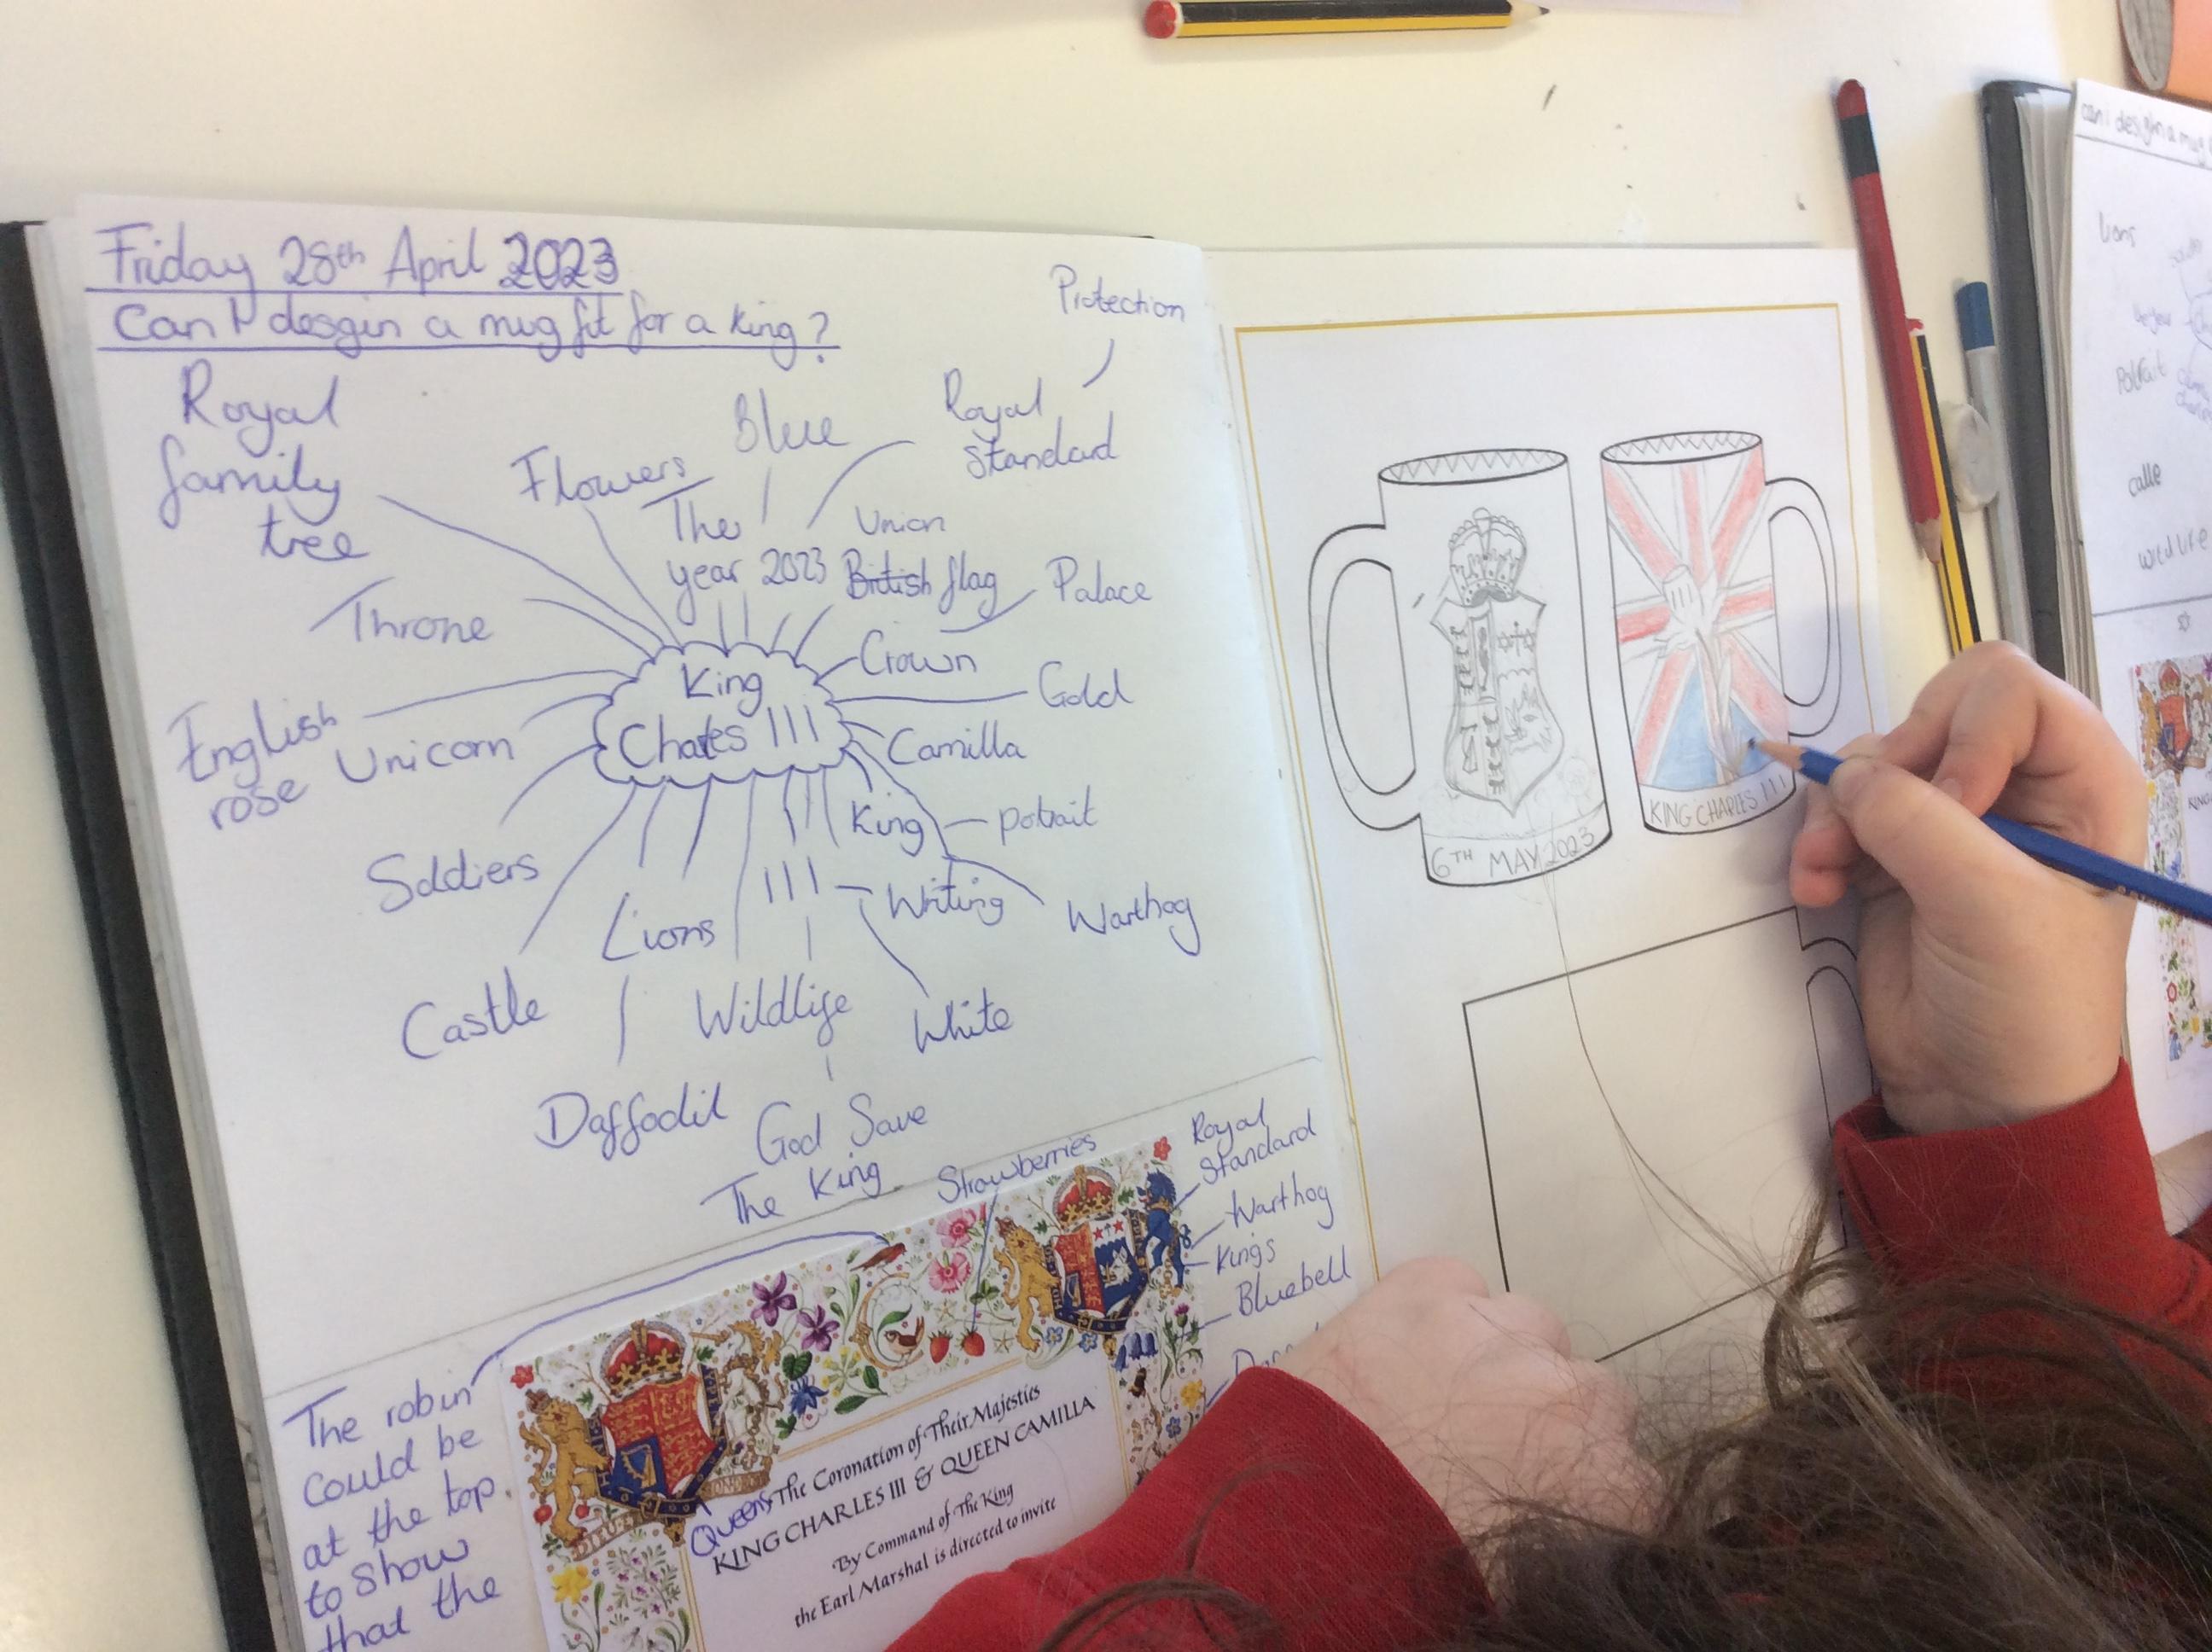 Friday 28th April 2023
Can I desgin a mug fit for a king?
Protection
Royal
family
tree
Flowers
Blue
Royal
Standard
The
year 2023
Union
British flag
Palace
Throne
Crown
King
Charles III
Gold
English
rose
Unicorn
Camilla
King
potrait
Soldiers
Lions
III
Writing
Warthog
Castle
Wildlife
White
Daffodil
God Save
The King
Strawberries
Royal
Standard
Warthog
Kings
Bluebell
The robin
could be
at the top
to show
that the
Queens
The Coronation of Their Majesties
KING CHARLES III & QUEEN CAMILLA
By Command of The King
the Earl Marshal is directed to invite
6TH MAY 2023
KING CHARLES III
can I design a mug
lions
Potrait
wild life